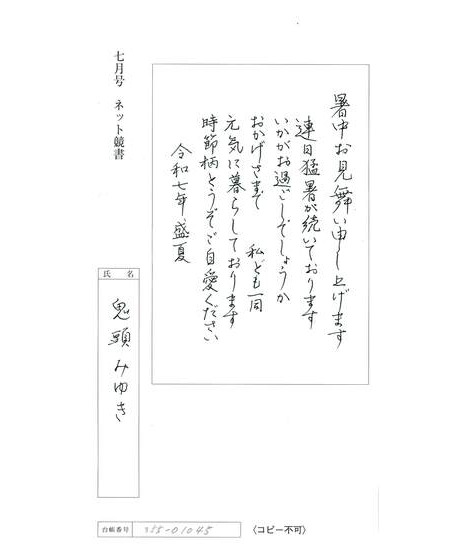 七月号 ネット競書
暑中お見舞い申し上げます
連日猛暑が続いております
いかがお過ごしでしょうか
おかげさまで 私ども一同
元気に暮らしております
時節柄どうぞご自愛ください
令和七年 盛夏
氏名
鬼頭みゆき
台帳番号 355-01045
〈コピー不可〉